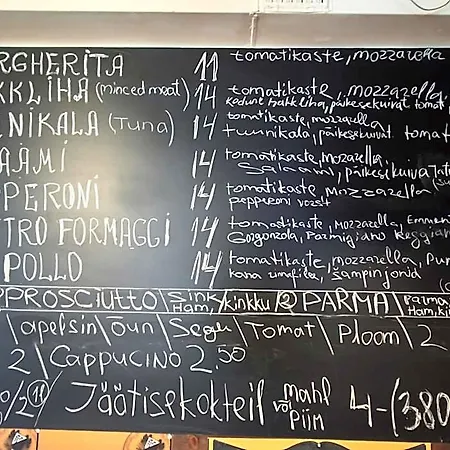 RGHERITA 11 tomatikaste, mozzarella
KKLIHA (minced meat) 14 tomatikaste, mozzarella,
kodune hakkliha, päikesekuivat tomat
NIKALA (Tuna) 14 tomatikaste, mozzarella
tuunikala, päikesekuivat tomat
AAMI 14 tomatikaste, mozarella,
Salaami, päikesekuiva
PERONI 14 tomatikaste, mozzarella
pepperoni vorst
TRO FORMAGGI 14 tomatikaste, mozzarella, Emmen
Gorgonzola, Parmigiano Reggian
POLLO 14 tomatikaste, mozzarella, Pun
kana šampinjonid
PROSCIUTTO \ SINK/kinkku PARMA \ Parma
Ham, Ham, ki
\ apelsin \ õun \ Segu \ Tomat \ Ploom \ 2
2 \ CAPPUCINO 2.50
Jäätisekokteil mahl 4-(380
või
piim